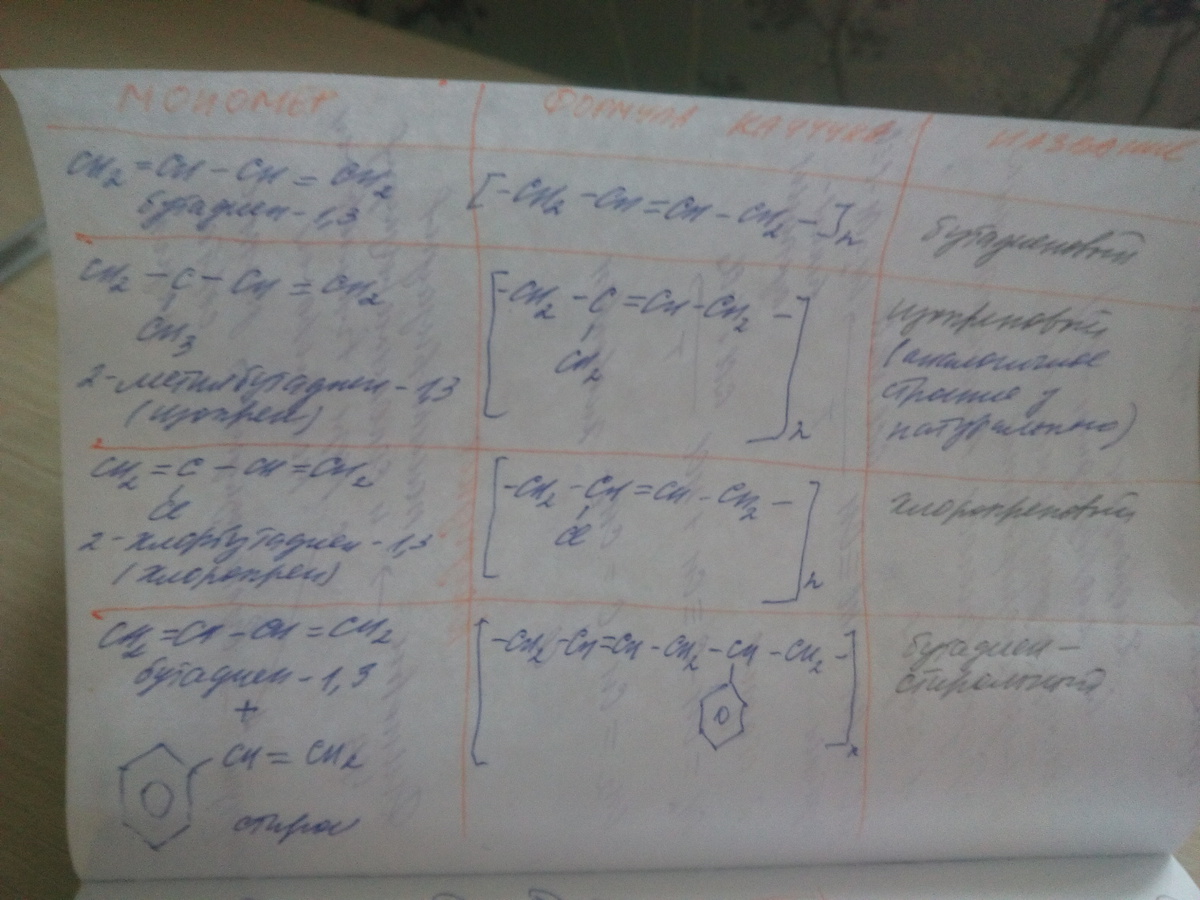 МОНОМЕР
ФОРМУЛА КАУЧУКА
НАЗВАНИЕ
CH2 = CH – CH = CH2
бутадиен – 1,3
[– CH2 – CH = CH – CH2 –]n
бутадиеновый
CH2 – C – CH = CH2
CH3
2-метилбутадиен – 1,3
(изопрен)
[– CH2 – C = CH – CH2 –]n
CH2
изопреновый
(аналогичное
строение у
натурального)
CH2 = C – CH = CH2
Cl
2-хлорбутадиен – 1,3
(хлоропрен)
[– CH2 – CH = CH – CH2 –]n
Cl
хлоропреновый
CH2 = CH – CH = CH2
бутадиен – 1,3
+
CH = CH2
стирол
[– CH2 – CH = CH – CH2 – CH – CH2 –]n
бутадиен –
стирольный